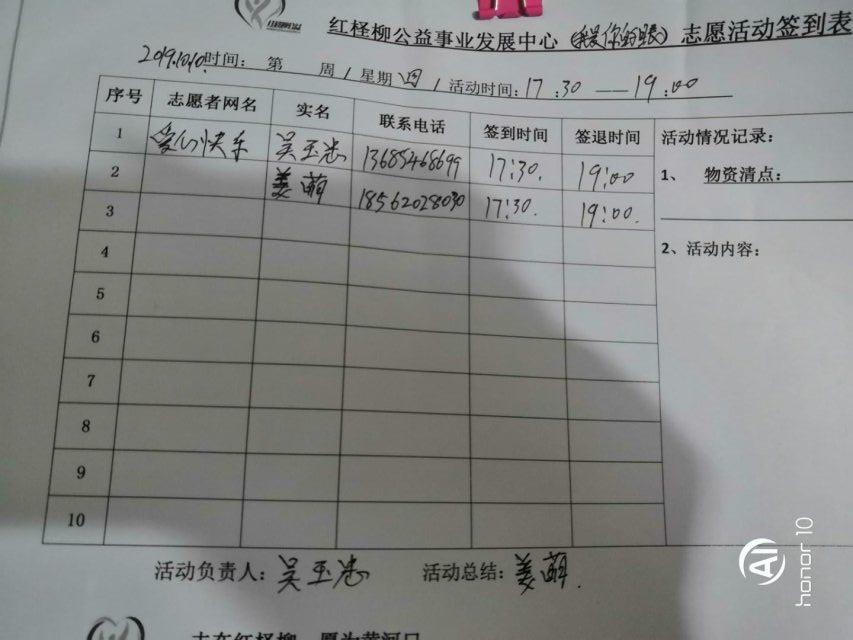 红柽柳公益事业发展中心(我是你的眼)志愿活动签到表
2019.10.10.时间： 第 周/星期 四/活动时间：17:30—19:00
序号 志愿者网名 实名 联系电话 签到时间 签退时间 活动情况记录：
1 爱心快乐 吴玉忠 13685468699 17:30. 19:00
1、 物资清点：
2 姜萌 18562028030 17:30. 19:00.
3
2、活动内容：
4
5
6
7
8
9
10
活动负责人：吴玉忠 活动总结：姜萌.
志在红柽柳 愿为黄河口
honor 10
AI